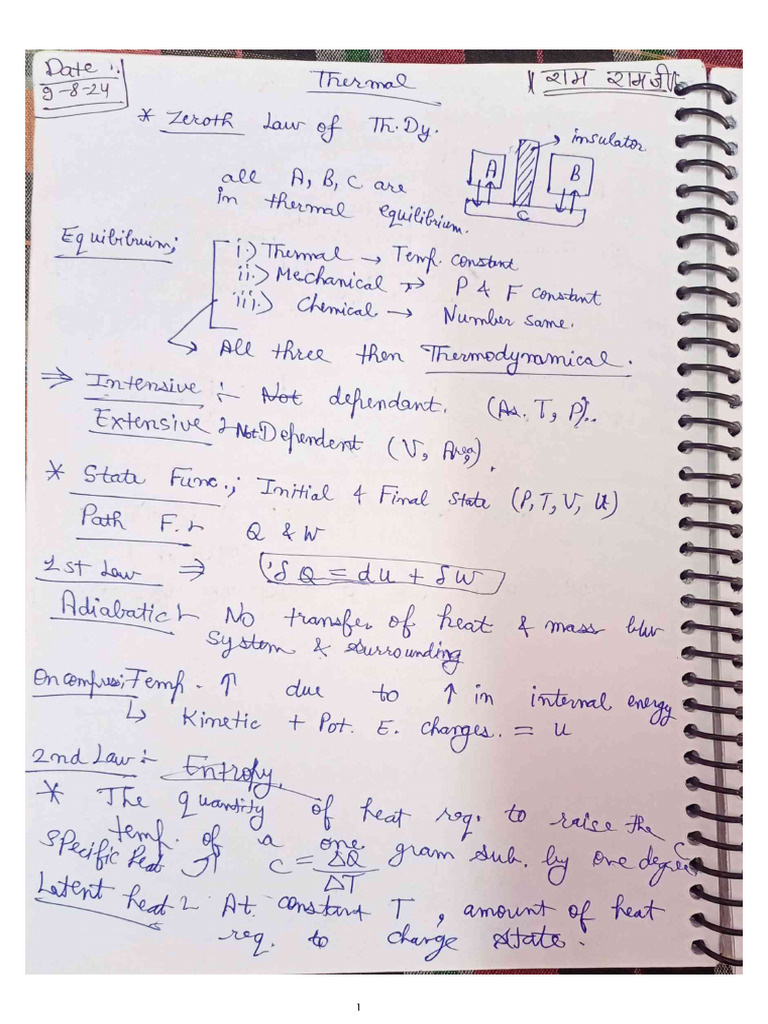 Date :.
9-8-24
Thermal
। राम राम जी ।
* Zeroth Law of Th. Dy.
insulator
A
B
C
all A, B, C are
in thermal equilibrium.
Equibibrium;
i.) Thermal → Temp. constant
ii.) Mechanical → P & F constant
iii.) Chemical → Number same.
↳ All three then Thermodynamical.
⇒ Intensive :- Not dependant. (As. T, P)..
Extensive :- Dependent (V, Area),
* State Func.; Initial & Final state (P, T, V, U)
Path F. :- Q & W
1st Law ⇒ δQ = dU + δW
Adiabatic :- No transfer of heat & mass b/w
system & surrounding
On compress; Temp. ↑ due to ↑ in internal energy
↳ Kinetic + Pot. E. charges. = U
2nd Law :- Entropy.
* The quantity of heat req. to raise the
temp. of a one gram sub. by one degree
specific heat C = ΔQ/ΔT
Latent heat :- At constant T, amount of heat
req. to change state.
1